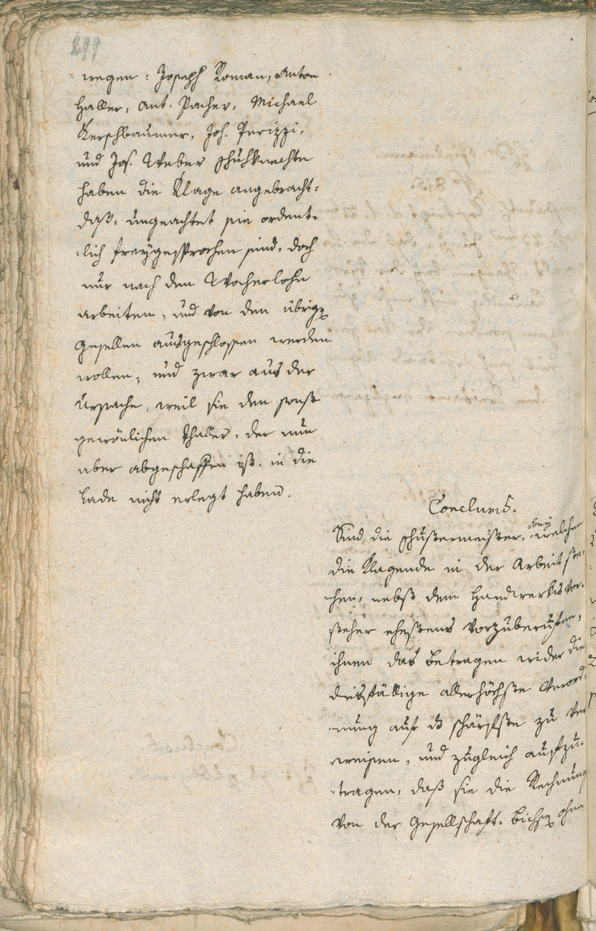 299
- wegen: Joseph Roman, Anton
Haller, Ant. Pacher, Michael
Kerschbaumer, Joh. Perizzi,
und Jos. Weber Schuhknechte
haben die Klage angebracht:
daß, ungeachtet sie ordent-
lich freygesprochen sind, doch
nur nach den Wocherlohn
arbeiten, und von den übrigen
Gesellen ausgeschlossen werden
wollen, und zwar aus der
Ursache, weil sie den sonst
gewönlichen Thaller, der nun
aber abgeschaffen ist, in die
Lade nicht erlegt haben.
Conclusū.
Sind die Schustermeister, bey welchen
die Klagende in der Arbeit ste-
hen, nebst dem Handwerksvor-
steher ehestens vorzuberufen,
ihnen das Betragen wider die
diesfällige allerhöchste Verord-
nung auf das schärfste zu ver-
weisen, und zugleich aufzu-
tragen, daß sie die Rechnung
von der Gesellschaft. Bichsen ohne